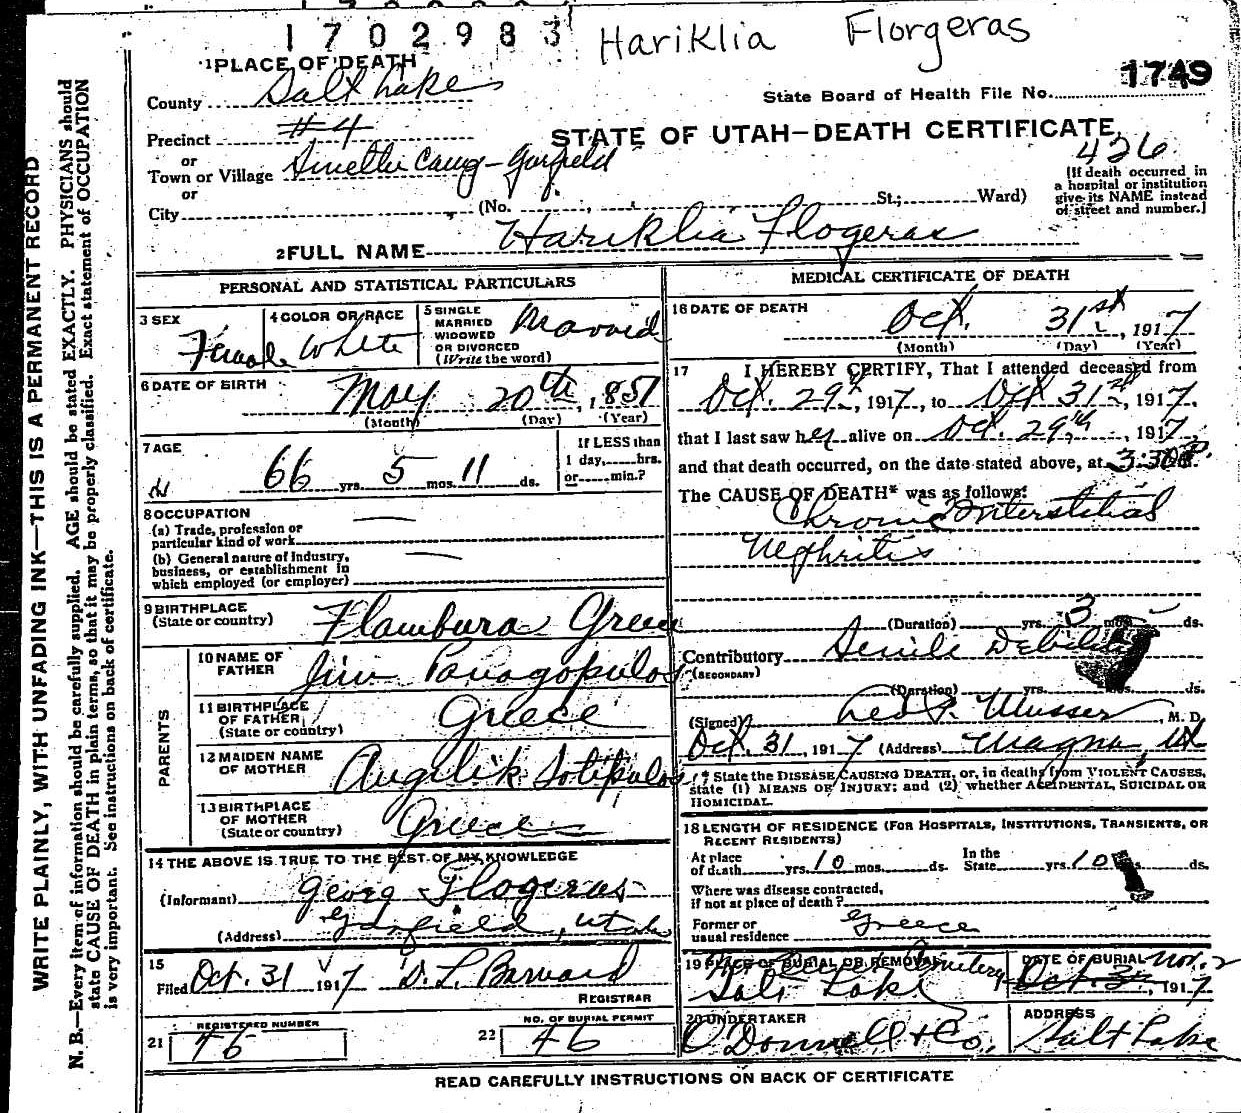 1702983 Hariklia Florgeras
1 PLACE OF DEATH
1749
County Salt Lake
State Board of Health File No.
Precinct #4
STATE OF UTAH—DEATH CERTIFICATE
or
426
Town or Village Smelter Camp - Garfield
(If death occurred in a hospital or institution give its NAME instead of street and number.)
or
City (No. St.; Ward)
2 FULL NAME Hariklia Flogeras
PERSONAL AND STATISTICAL PARTICULARS
3 SEX Female
4 COLOR OR RACE White
5 SINGLE MARRIED WIDOWED OR DIVORCED (Write the word) Married
6 DATE OF BIRTH May 20th, 1851
(Month) (Day) (Year)
7 AGE 66 yrs. 5 mos. 11 ds.
If LESS than 1 day, hrs. or min.?
8 OCCUPATION —
(a) Trade, profession or particular kind of work
(b) General nature of Industry, business, or establishment in which employed (or employer) —
9 BIRTHPLACE (State or country) Flambura Greece
PARENTS
10 NAME OF FATHER Jim Panagopulos
11 BIRTHPLACE OF FATHER (State or country) Greece
12 MAIDEN NAME OF MOTHER Angelik Sotipulos
13 BIRTHPLACE OF MOTHER (State or country) Greece
14 THE ABOVE IS TRUE TO THE BEST OF MY KNOWLEDGE
(Informant) Georg Flogeras
(Address) Garfield, Utah
15
Filed Oct. 31 1917 D. L. Barnard
REGISTRAR
21 REGISTERED NUMBER 45
22 NO. OF BURIAL PERMIT 46
MEDICAL CERTIFICATE OF DEATH
16 DATE OF DEATH Oct. 31st, 1917
(Month) (Day) (Year)
17 I HEREBY CERTIFY, That I attended deceased from
Oct. 29th, 1917, to Oct 31st, 1917.
that I last saw her alive on Oct. 29th, 1917,
and that death occurred, on the date stated above, at 3:30 P.
The CAUSE OF DEATH* was as follows:
Chronic Interstitial
Nephritis
(Duration) yrs. 3 mos. ds.
Contributory (SECONDARY) Senile Debility
(Duration) yrs. mos. ds.
(Signed) Leo P. Musser, M. D.
Oct. 31, 1917 (Address) Magna, Ut
* State the DISEASE CAUSING DEATH, or, in deaths from VIOLENT CAUSES, state (1) MEANS OF INJURY; and (2) whether ACCIDENTAL, SUICIDAL OR HOMICIDAL.
18 LENGTH OF RESIDENCE (FOR HOSPITALS, INSTITUTIONS, TRANSIENTS, OR RECENT RESIDENTS)
At place of death yrs. 10 mos. ds. In the State yrs. 10 ds.
Where was disease contracted, if not at place of death?
Former or usual residence Greece
19 PLACE OF BURIAL OR REMOVAL Cemetery
Salt Lake
DATE OF BURIAL Nov. 2
Oct. 1917
20 UNDERTAKER O'Donnell & Co.
ADDRESS Salt Lake
READ CAREFULLY INSTRUCTIONS ON BACK OF CERTIFICATE
WRITE PLAINLY, WITH UNFADING INK—THIS IS A PERMANENT RECORD
N. B.—Every item of information should be carefully supplied. AGE should be stated EXACTLY. PHYSICIANS should
state CAUSE OF DEATH in plain terms, so that it may be properly classified. Exact statement of OCCUPATION
is very important. See instructions on back of certificate.